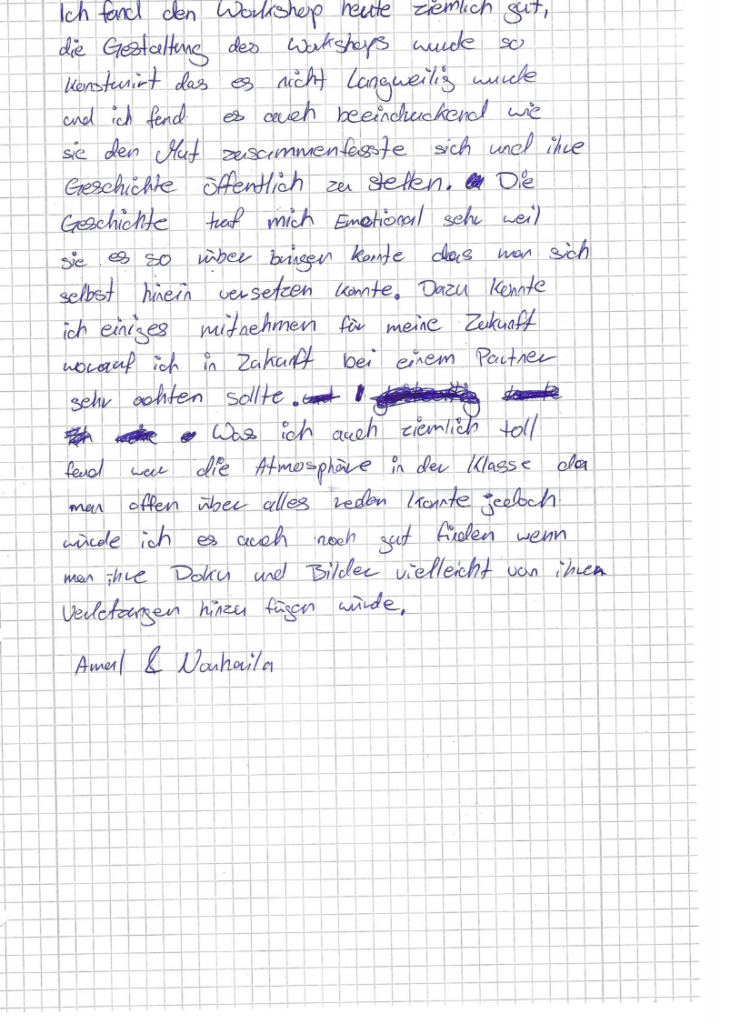 Ich fand den Workshop heute ziemlich gut,
die Gestaltung des Workshops wurde so
konstuirt das es nicht langweilig wurde
und ich fand es auch beeindruckend wie
sie den Mut zusammenfasste sich und ihre
Geschichte öffentlich zu stellen. Die
Geschichte traf mich Emotional sehr weil
sie es so über bringen konnte das man sich
selbst hinein versetzen konnte. Dazu konnte
ich einiges mitnehmen für meine Zukunft
worauf ich in Zukunft bei einem Partner
sehr achten sollte.
Was ich auch ziemlich toll
fand war die Atmosphäre in der Klasse da
man offen über alles reden konnte jedoch
würde ich es auch noch gut finden wenn
man ihre Doku und Bilder vielleicht von ihren
Verletzungen hinzu fügen würde.
Amal & Nouhaila